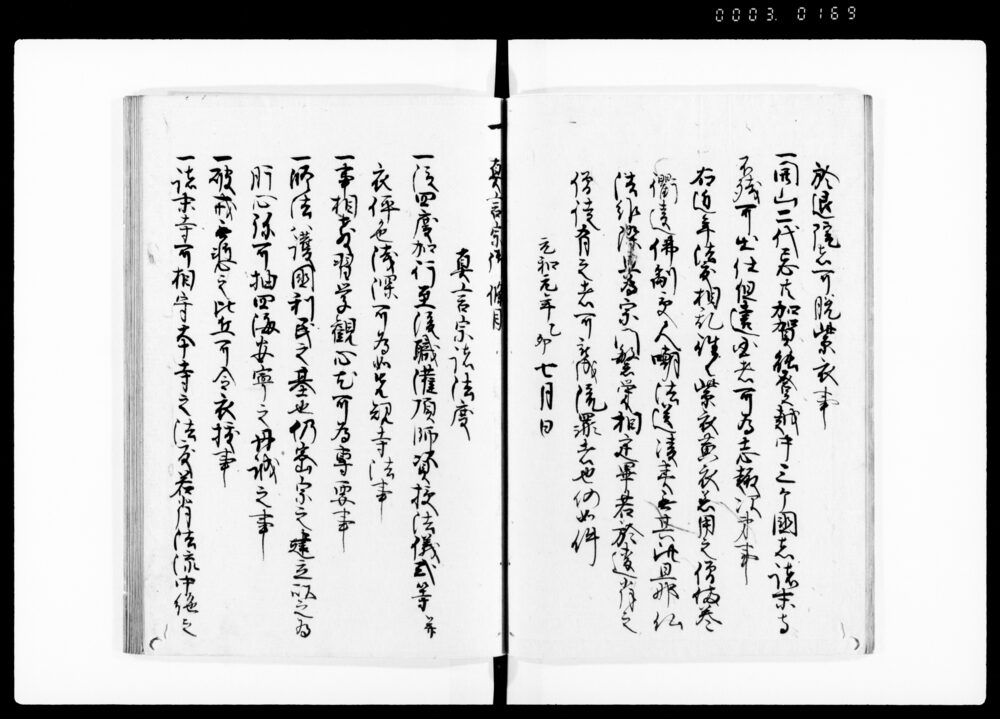 0003 0169
於退院者可脱紫衣事
一開山二代忌者加賀能登越中三ケ國者諸末寺
不残可出仕但遠国者可為志趣次第事
右近年法度相乱猥紫衣黄衣着用之僧侶甚
衢違佛制受人嘲法道凌夷其
法准繁栄相定畢若於違背之
僧徒有之者可流罪者也仍如件
元和元年乙卯七月日
一真言宗諸條目
真言宗諸法度
一従四度加行至授職灌頂師資授法儀式等并
衣体色浅深可為如先規寺法事
一事相教習学観心尤可為専要事
一修法者護國利民之基也仍密宗之建立以之為
肝心弥可抽四海安寧之丹誠之事
一破戒無慙之比丘可令衣擯事
一諸末寺可相守本寺之法度若背法流中絶之